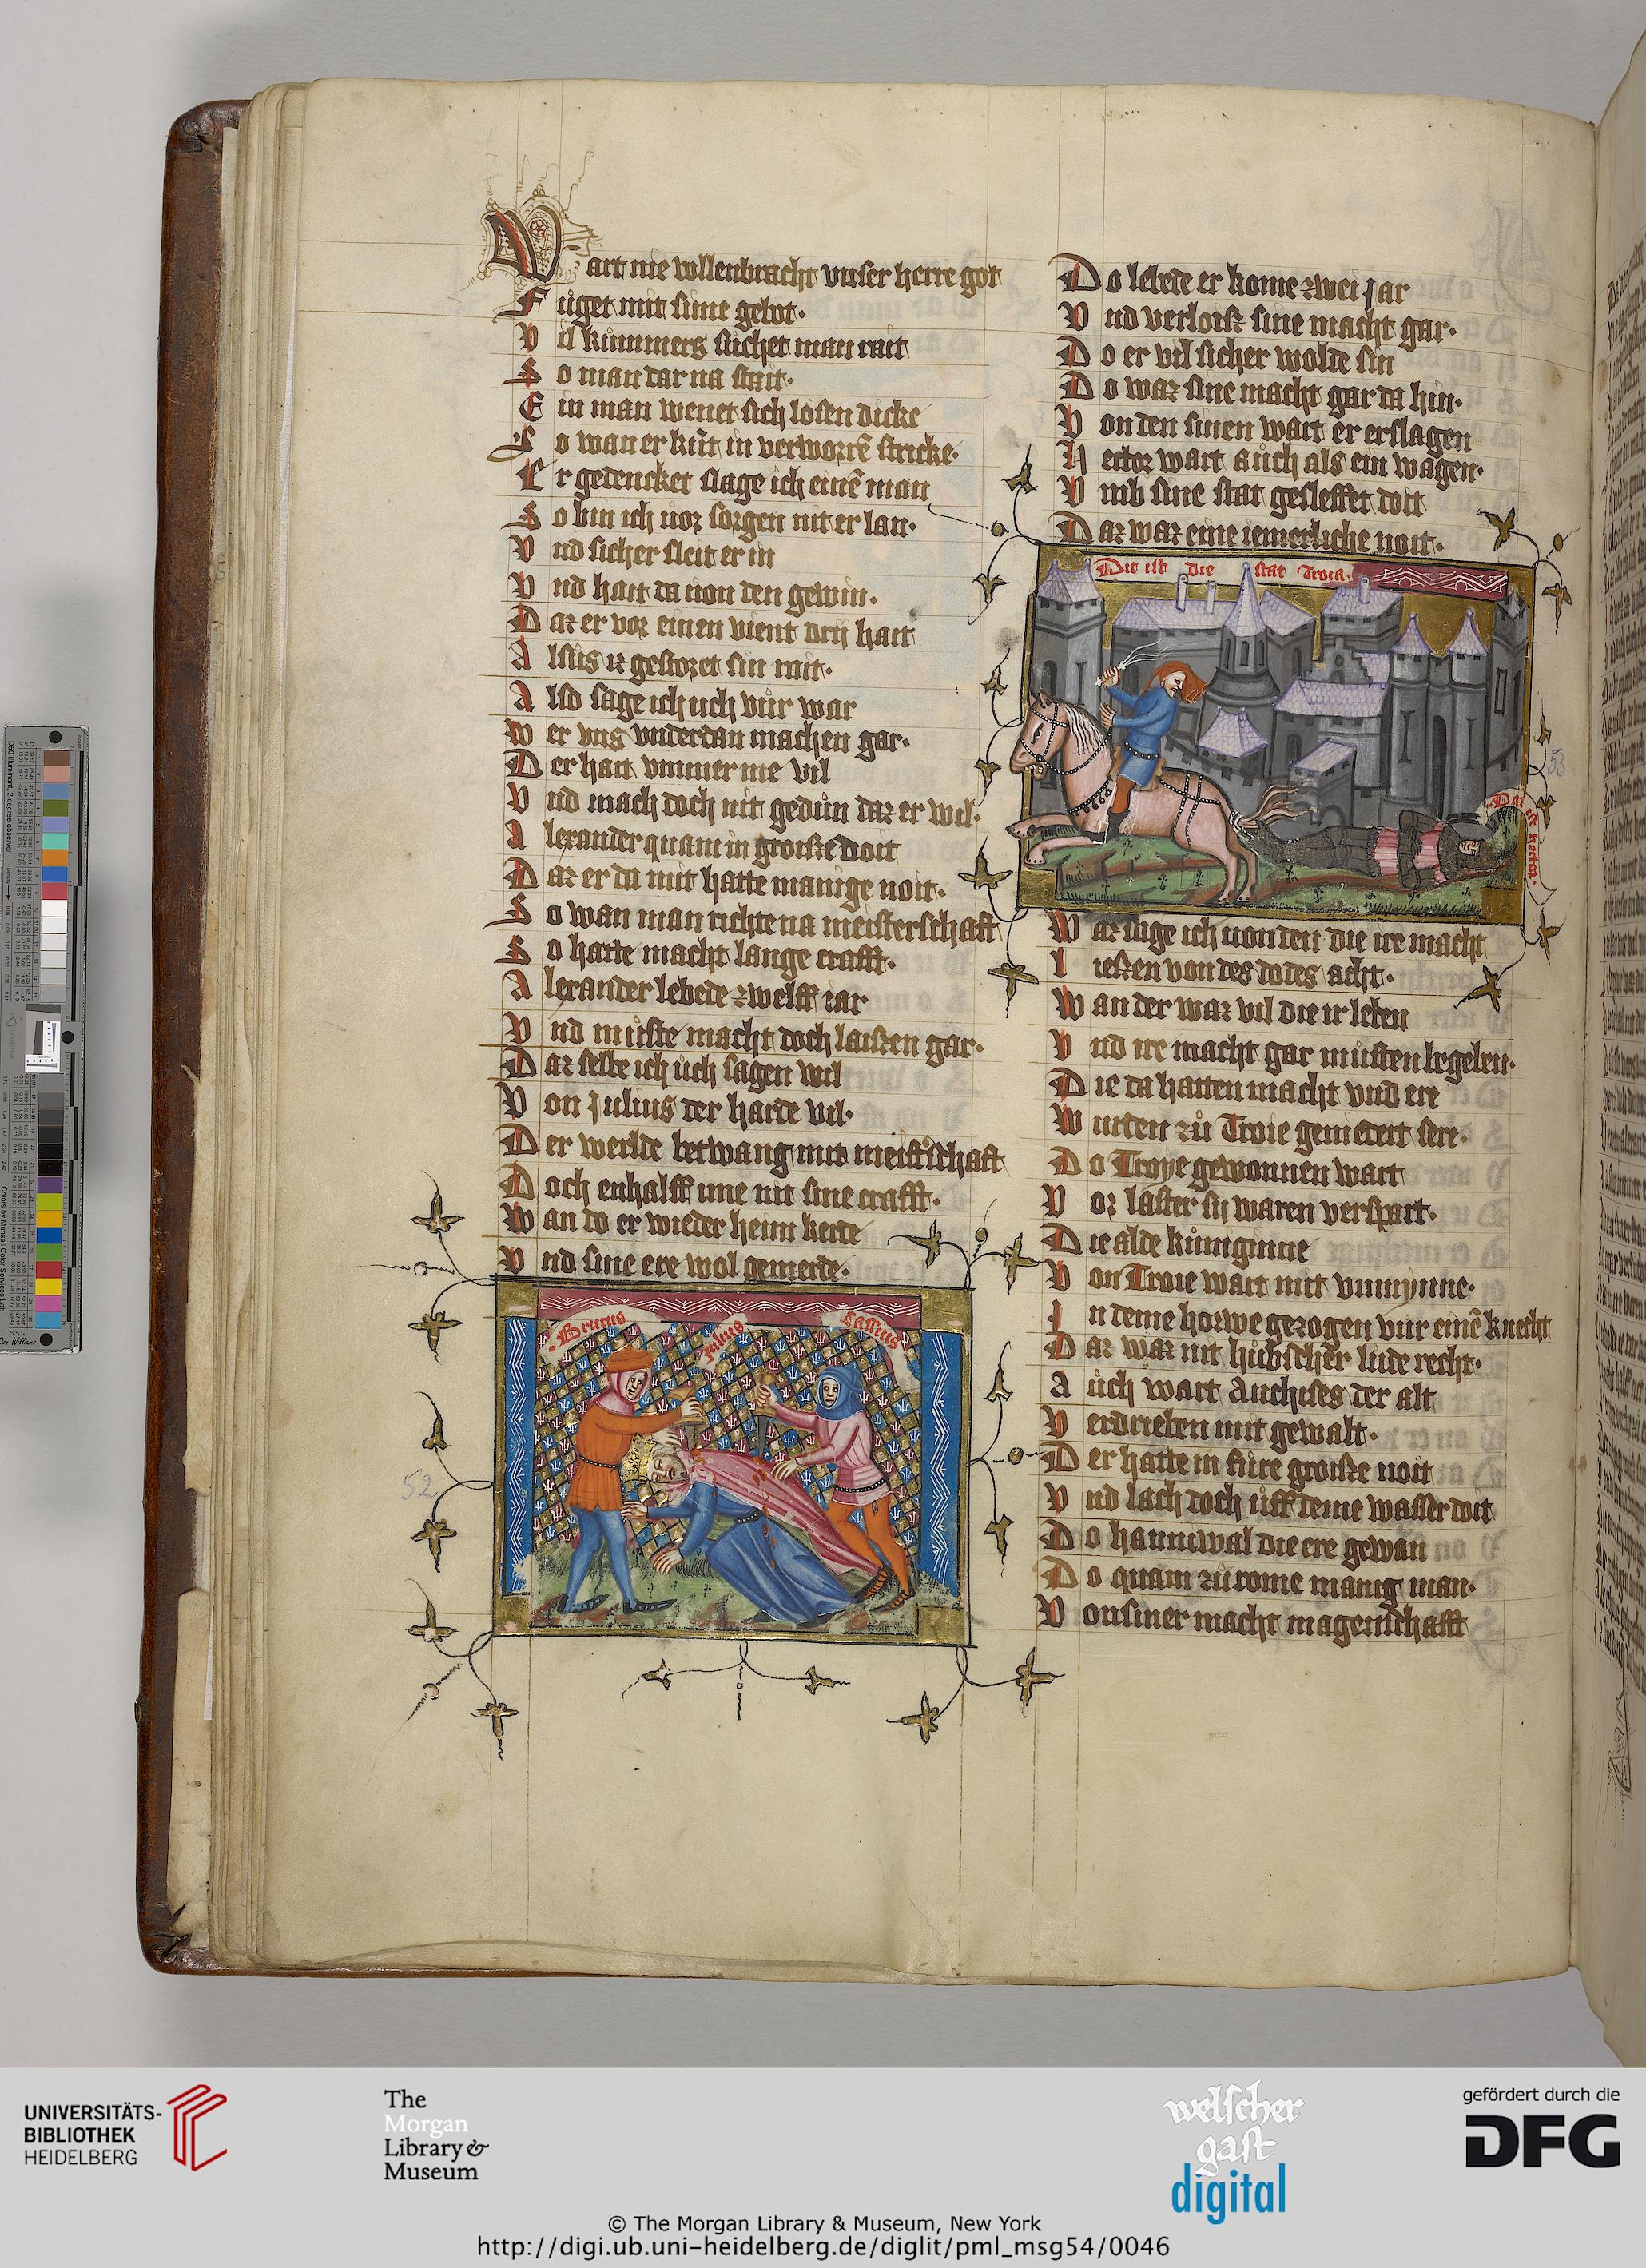 Wart nie vollenbracht vnser herre got
Füget mit sime gebot·
Vil kummers suchet man rait
So man dar na stait·
Ein man wenet sich losen dicke
So wan er kūt in verworrē stricke·
Er gedencket slage ich einē man
So bin ich vor sorgen nit er lan·
Vnd sicher sleit er in
Vnd hait da von den gewin·
Daz er vor einen vient drij hait
Alsus iz gestozet sin rait·
Also sage ich uch vür war
Wer vns vnderdan machen gar·
Der hait vmmer me vil
Vnd mach doch nit gedün daz er wil·
Alexander quam in groisze doit
Daz er da mit hatte manige noit·
So wan man richte na meisterschafft
So hatte macht lange crafft·
Alexander lebede zwelff iar
Vnd müste macht doch laiszen gar·
Daz selbe ich üch sagen wil
Von Julius der harde vil·
Der werlde betwang mit meistschaft
Doch enhalff ime nit sine crafft·
Wan do er wieder heim kerte
Vnd sine ere wol gemerde·
Brutus
Julius
Cassius
52
Do lebete er kome zwei Jar
Vnd verloisz sine macht gar·
Do er vil sicher wolde sin
Do waz sine macht gar da hin·
Von den sinen wart er erslagen
Hector wart auch als ein wagen·
Vmb sine stat gesleffet doit
Daz waz eine iemerliche noit·
Dit ist die stat Troia·
Daz ist hector·
53
Waz sage ich von den die ire macht
lieszen von des dodes acht·
Wan der waz vil die ir leben
Vnd ire macht gar müsten begeben·
Die da hatten macht vnd ere
Wurden zü Troie genidert sere·
Do Troye gewonnen wart
Vor laster sij waren verspart·
Die alde küniginne
Von Troie wart mit vnmynne·
In deme horwe gezogen vür einē knecht
Daz waz nit hübscher lude recht·
Auch wart Anchises der alt
Verdrieben mit gewalt·
Der hatte in füre groisze noit
Vnd lach doch uff deme wasser doit
Do hanniwal die ere gewan
Do quam zü rome manig man·
Von siner macht magenschafft
UNIVERSITÄTS-
BIBLIOTHEK
HEIDELBERG
The
Morgan
Library &
Museum
welscher
gast
digital
gefördert durch die
DFG
© The Morgan Library & Museum, New York
http://digi.ub.uni-heidelberg.de/diglit/pml_msg54/0046